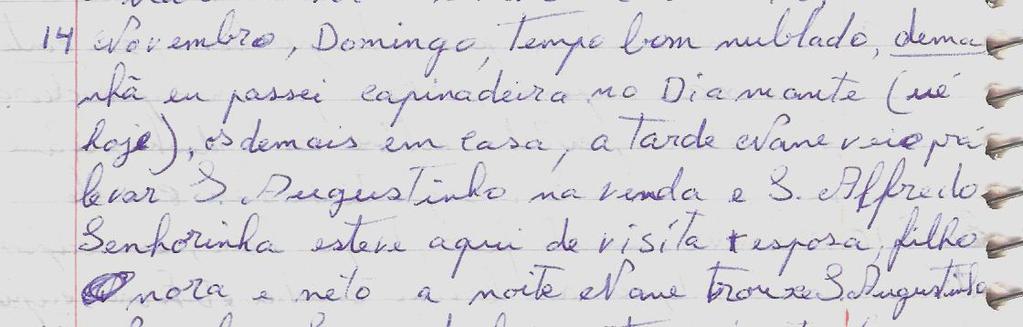 14 Novembro, Domingo, Tempo bom nublado, dema
nhã eu passei capinadeira no Diamante (ué
hoje), os demais em casa, a Tarde Nane veio prá
levar S. Augustinho na venda e S. Alffredo
Senhorinha esteve aqui de visita esposa, filho
nora e néto a noite Nane trouxe S. Augustinho